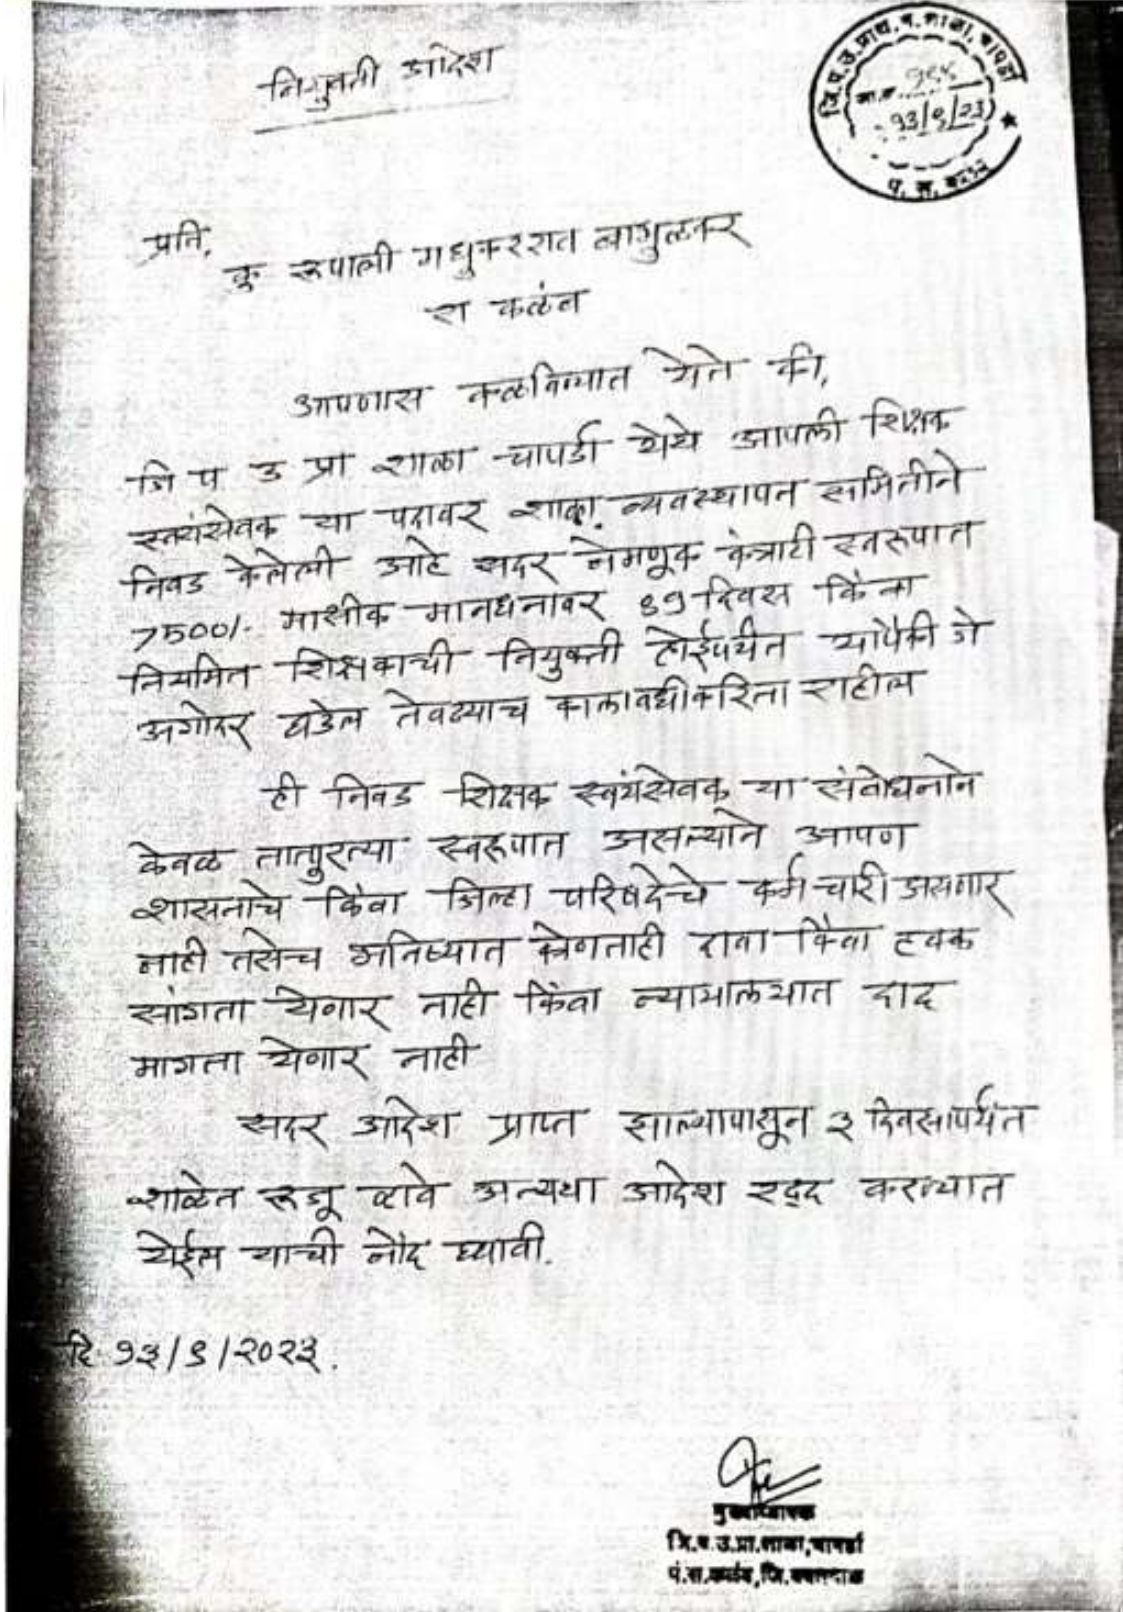 नियुक्ती आदेश
जि.प.उ.प्राथ.म.शाळा, चापर्डा
जा.क्र.
१३/९/२३
पं. स. कळंब
प्रति,
कु रूपाली मधुकरराव वागुळकर
रा कळंब
आपणास कळविण्यात येते की,
जि प उ प्रा शाळा चापर्डा येथे आपली शिक्षक
स्वयंसेवक या पदावर शाळा व्यवस्थापन समितीने
निवड केलेली आहे सदर नेमणूक कंत्राटी स्वरूपात
7500/- मासीक मानधनावर ६१ दिवस किंवा
नियमित शिक्षकाची नियुक्ती होईपर्यंत यापैकी जे
अगोदर घडेल तेवढ्याच कालावधीकरिता राहील
ही निवड शिक्षक स्वयंसेवक या संबोधनाने
केवळ तात्पुरत्या स्वरूपात असल्याने आपण
शासनाचे किंवा जिल्हा परिषदेचे कर्मचारी असणार
नाही तसेच भविष्यात कोणताही दावा किंवा हक्क
सांगता येणार नाही किंवा न्यायालयात दाद
मागता येणार नाही
सदर आदेश प्राप्त झाल्यापासून ३ दिवसापर्यंत
शाळेत रूजू व्हावे अन्यथा आदेश रद्द करण्यात
येईल याची नोंद घ्यावी.
दि १३/९/२०२३.
मुख्याध्यापक
जि.प.उ.प्रा.शाळा, चापर्डा
पं.स.कळंब, जि.यवतमाळ